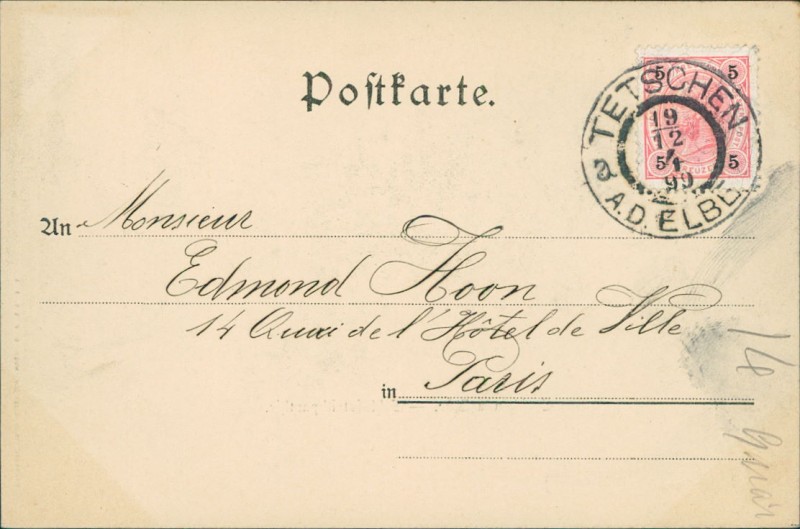 Postkarte.
5 5
5 5
TETSCHEN
19
12
4
99
A.D. ELBE
An Monsieur
Edmond Hoon
14 Quai de l'Hôtel de Ville
in Paris
14